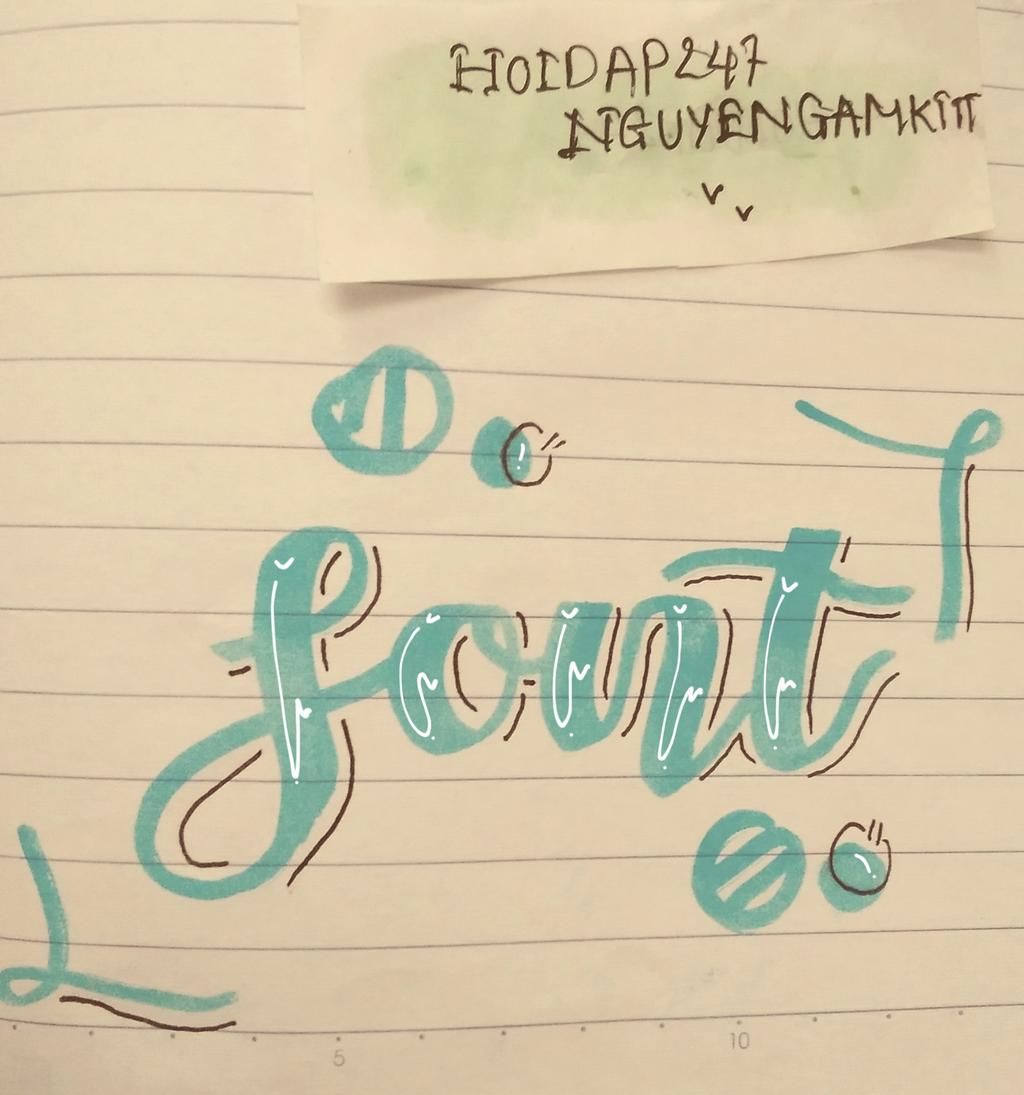 HOIDAP247
NGUYENGAMKITT
font
5 10